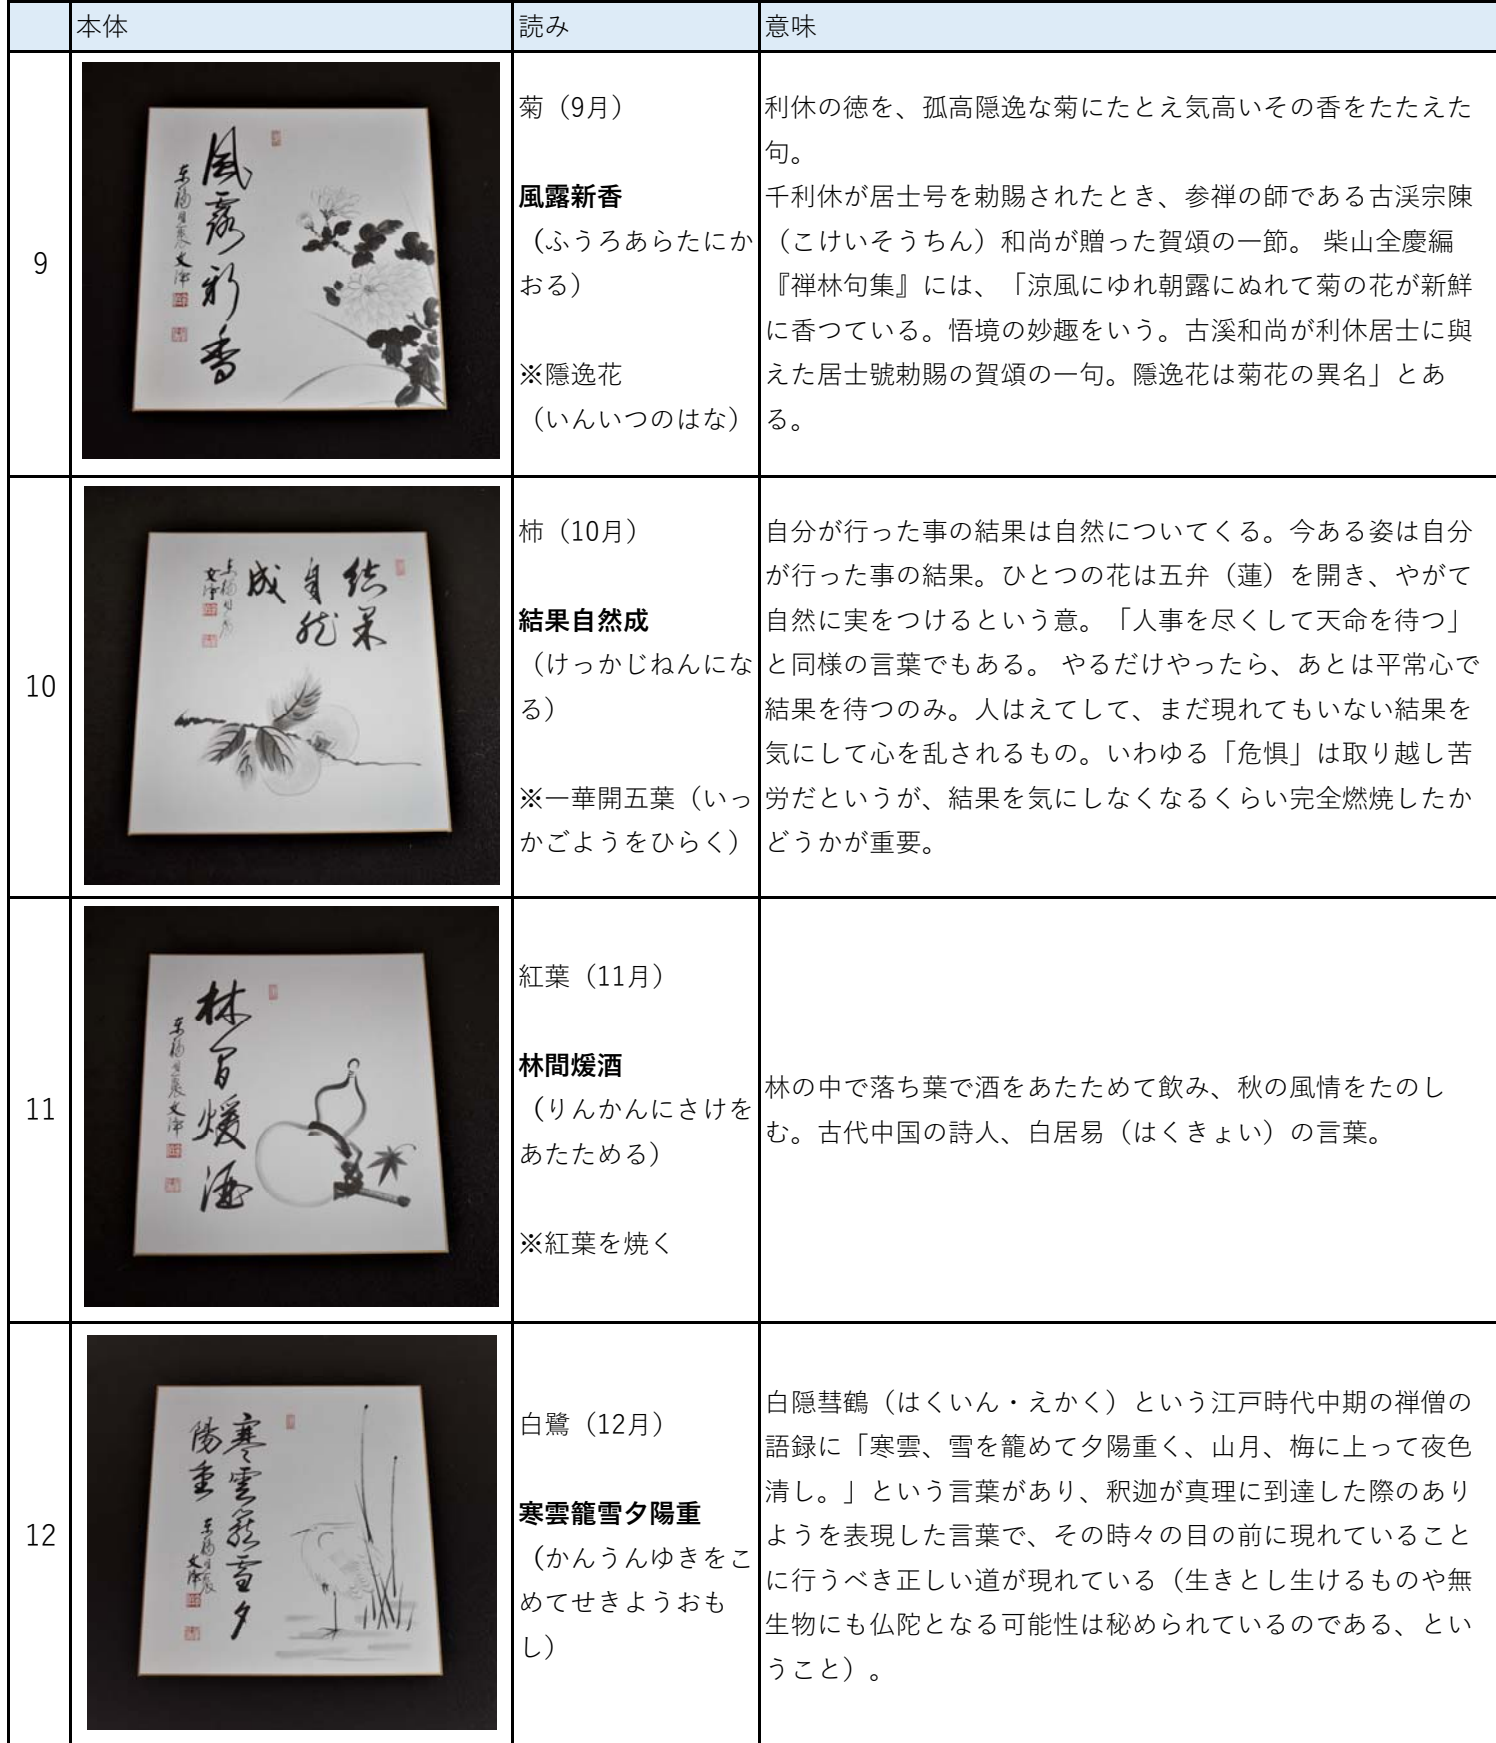 本体
読み
意味
9
風露新香
東福
文渾
菊（9月）
風露新香
（ふうろあらたにか
おる）
※隠逸花
（いんいつのはな）
利休の徳を、孤高隠逸な菊にたとえ気高いその香をたたえた
句。
千利休が居士号を勅賜されたとき、参禅の師である古渓宗陳
（こけいそうちん）和尚が贈った賀頌の一節。 柴山全慶編
『禅林句集』には、「涼風にゆれ朝露にぬれて菊の花が新鮮
に香つている。悟境の妙趣をいう。古溪和尚が利休居士に與
えた居士號勅賜の賀頌の一句。隱逸花は菊花の異名」とあ
る。
10
結果
自然
成
柿（10月）
結果自然成
（けっかじねんにな
る）
※一華開五葉（いっ
かごようをひらく）
自分が行った事の結果は自然についてくる。今ある姿は自分
が行った事の結果。ひとつの花は五弁（蓮）を開き、やがて
自然に実をつけるという意。「人事を尽くして天命を待つ」
と同様の言葉でもある。 やるだけやったら、あとは平常心で
結果を待つのみ。人はえてして、まだ現れてもいない結果を
気にして心を乱されるもの。いわゆる「危惧」は取り越し苦
労だというが、結果を気にしなくなるくらい完全燃焼したか
どうかが重要。
11
林間煖酒
紅葉（11月）
林間煖酒
（りんかんにさけを
あたためる）
※紅葉を焼く
林の中で落ち葉で酒をあたためて飲み、秋の風情をたのし
む。古代中国の詩人、白居易（はくきょい）の言葉。
12
寒雲籠雪夕
陽重
白鷺（12月）
寒雲籠雪夕陽重
（かんうんゆきをこ
めてせきようおも
し）
白隠彗鶴（はくいん・えかく）という江戸時代中期の禅僧の
語録に「寒雲、雪を籠めて夕陽重く、山月、梅に上って夜色
清し。」という言葉があり、釈迦が真理に到達した際のあり
ようを表現した言葉で、その時々の目の前に現れていること
に行うべき正しい道が現れている（生きとし生けるものや無
生物にも仏陀となる可能性は秘められているのである、とい
うこと）。